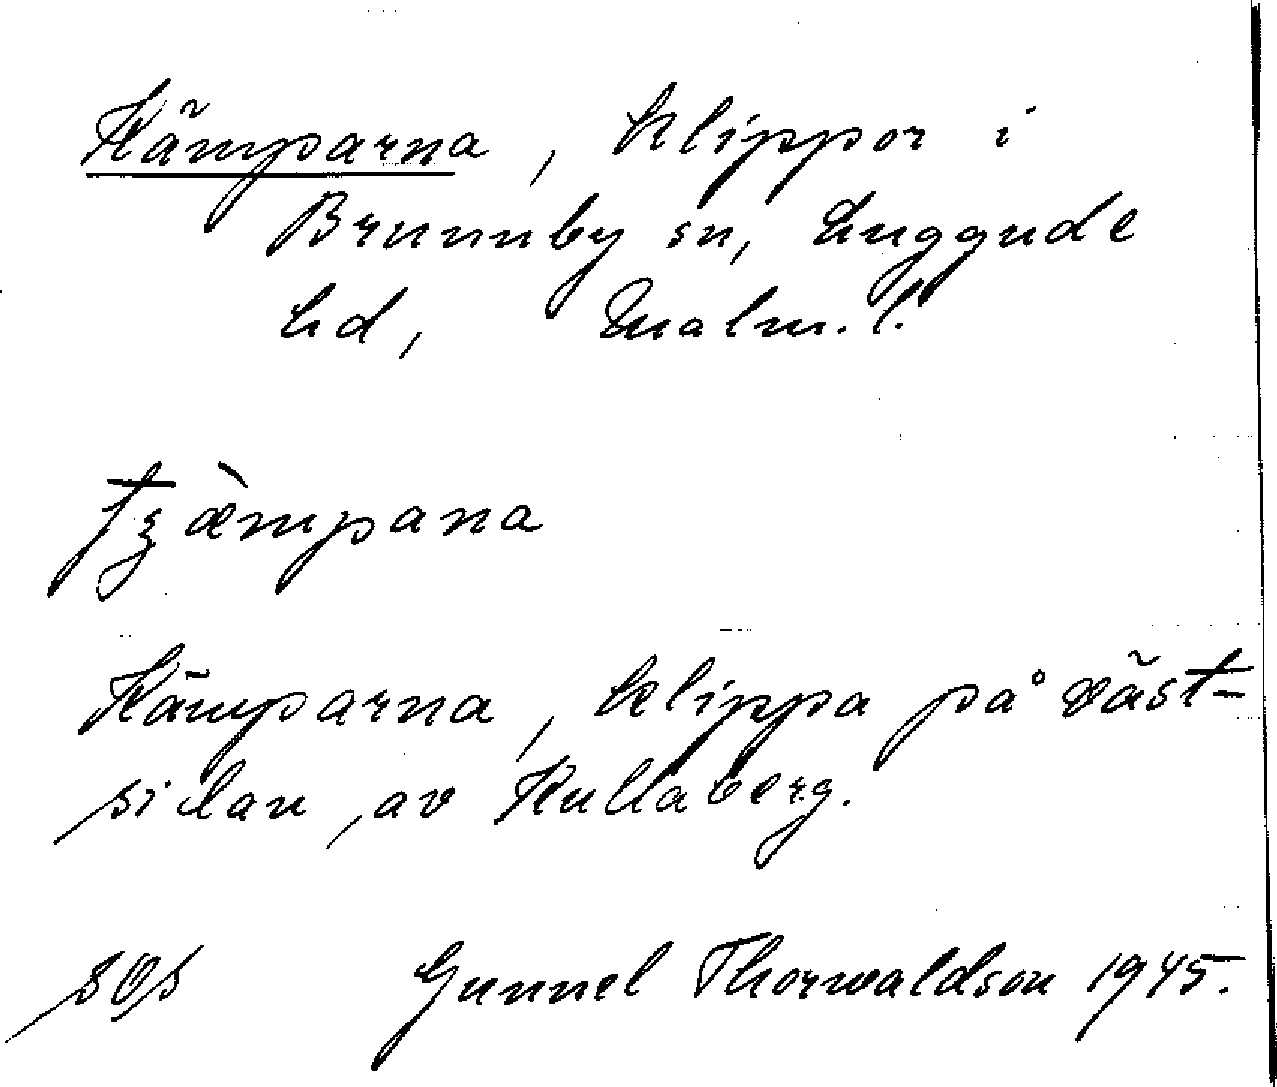 Kämparna, klippor i
Brunnby sn, Luggude
hd, Malm. l.
tʒæ̀mpana
Kämparna, klippa på väst-
sidan, av Kullaberg.
Gunnel Thorwaldson 1945.